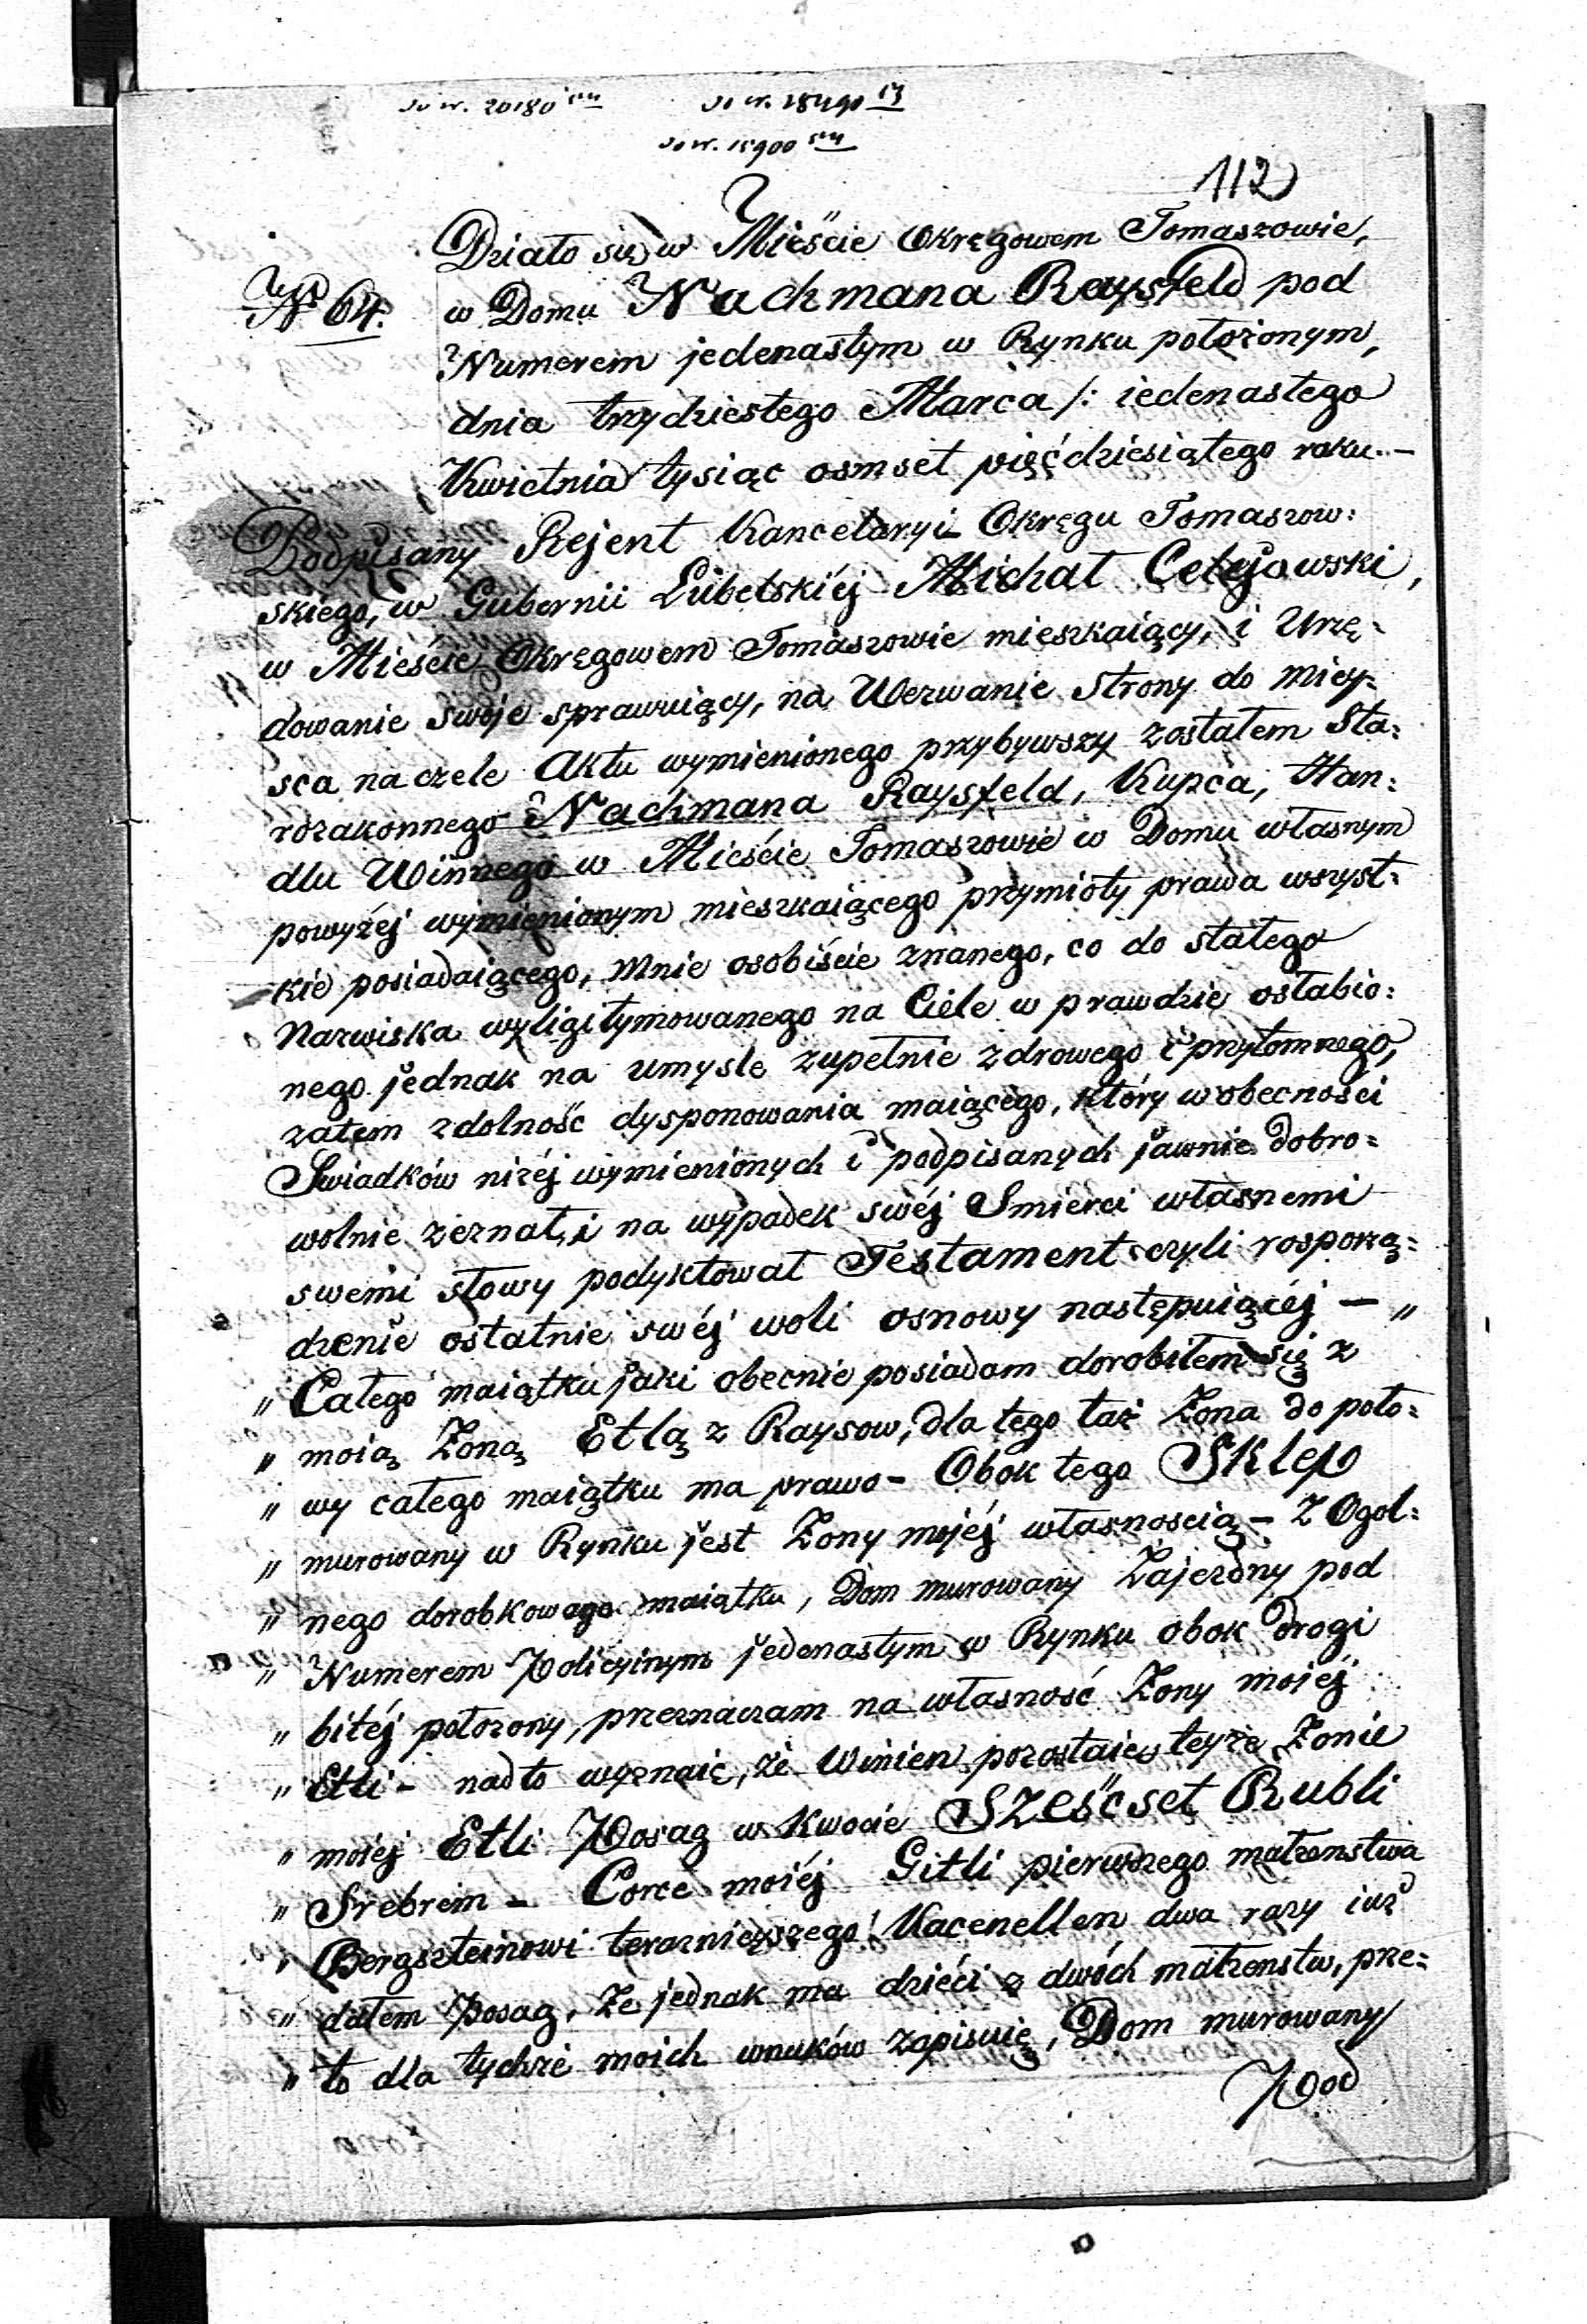 112
Działo się w Mieście Okręgowem Tomaszowie,
N 64. w Domu Nachmana Raysfeld pod
Numerem jedenastym w Rynku położonym,
dnia trzydziestego Marca /: iedenastego
Kwietnia tysiąc osmset pięćdziesiątego roku.—
Podpisany Rejent Kancelaryi Okręgu Tomaszow:
skiego, w Gubernii Lubelskiéj Michał Celejowski,
w Mieście Okręgowem Tomaszowie mieszkaiący, i Urzę:
dowanie swoje sprawuiący, na Wezwanie Strony do miey:
sca na czele Aktu wymienionego przybywszy zastałem Sta:
rozakonnego Nachmana Raysfeld, Kupca, Han:
dlu Winnego w Mieście Tomaszowie w Domu własnym
powyżéj wymienionym mieszkaiącego przymioty prawa wszyst:
kie posiadaiącego, mnie osobiście znanego, co do stałego
Nazwiska wyligitymowanego na Ciele w prawdzie osłabio:
nego jednak na umysle zupełnie zdrowego i przytomnego,
zatem zdolność dysponowania maiącego, który w obecności
Swiadków niżéj wymienionych i podpisanych jawnie dobro:
wolnie zeznał, i na wypadek swéj Smierci własnemi
swemi słowy podyktował Testament czyli rosporzą:
dzenie ostatnie swéj woli osnowy następuiącéj — „
„ Całego maiątku jaki obecnie posiadam dorobiłem się z
„ moią Żoną Etlą z Raysow, dla tego taż Żona do poło:
„ wy całego maiątku ma prawo – Obok tego Sklep
„ murowany w Rynku jest Żony mojéj własnoscią – Z Ogol:
„ nego dorobkowego maiątku, Dom murowany Zajezdny pod
„ Numerem Policyinym jedenastym w Rynku obok drogi
„ bitéj położony, przeznaczam na własność Żony moiéj
„ Etli – nadto wyznaię, że Winien pozostaię teyże Żonie
„ moiéj Etli Posag w Kwocie Sześćset Rubli
„ Srebrem – Corce moiéj Gitli pierwszego małżenstwa
„ Bergszteinowi terazniéyszego Kacenellen, dwa razy iuż
„ dałem Posag, że jednak ma dzieci z dwóch małżenstw, prze:
„ to dla tychże moich wnuków zapisuię, Dom murowany
Pod